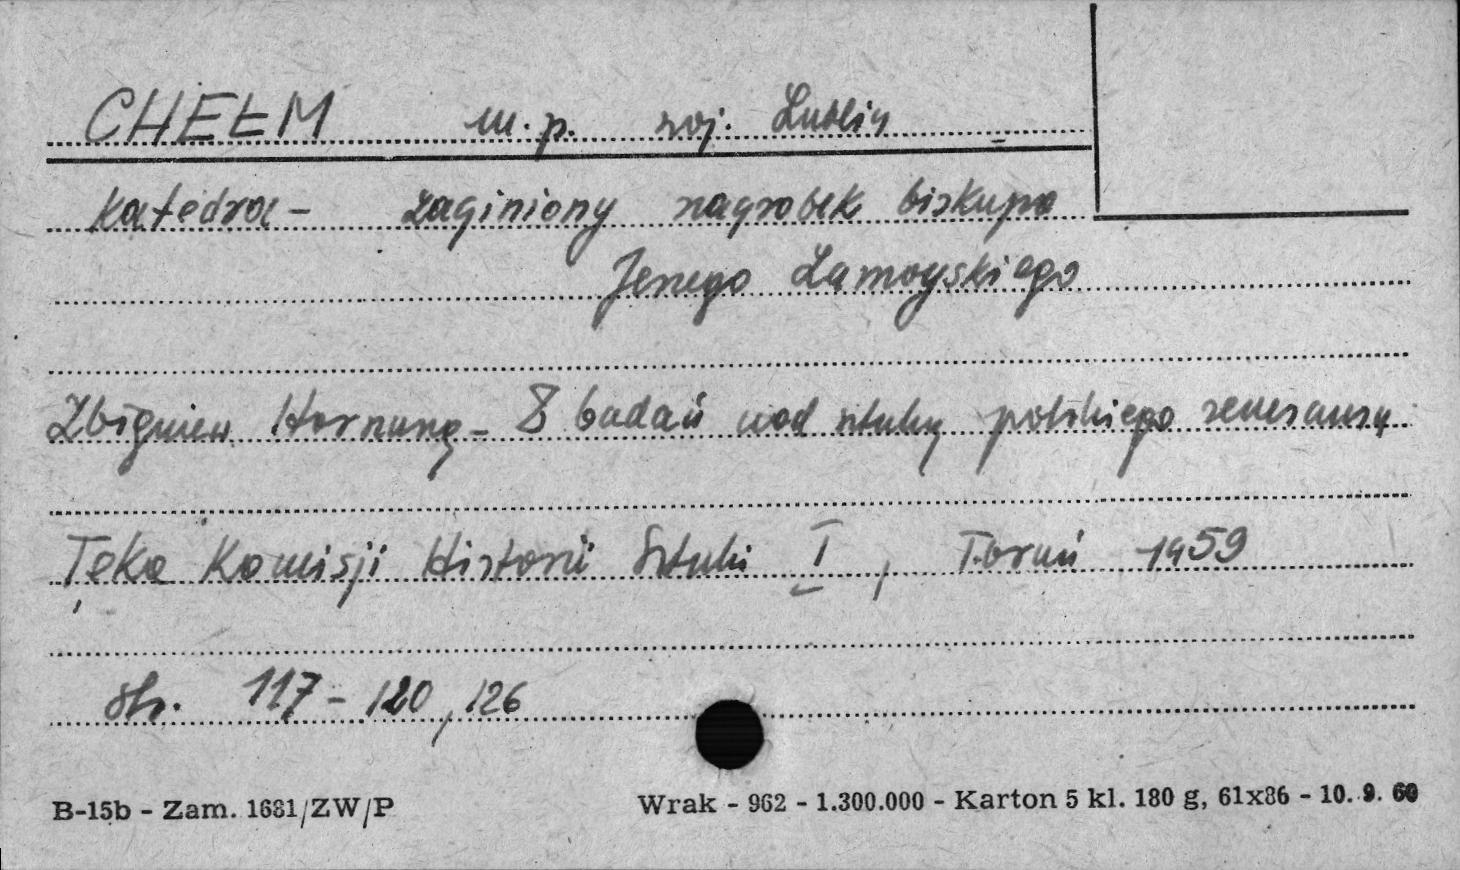 CHEŁM m.p. woj. Lublin
katedra - zaginiony nagrobek biskupa
Jerzego Zamoyskiego
Zbigniew Hornung - Z badań nad sztuką polskiego renesansu
Teka Komisji Historii Sztuki I, Toruń 1959
str. 117-120, 126
B-15b - Zam. 1681/ZW/P Wrak - 962 - 1.300.000 - Karton 5 kl. 180 g, 61x86 - 10. 9. 60